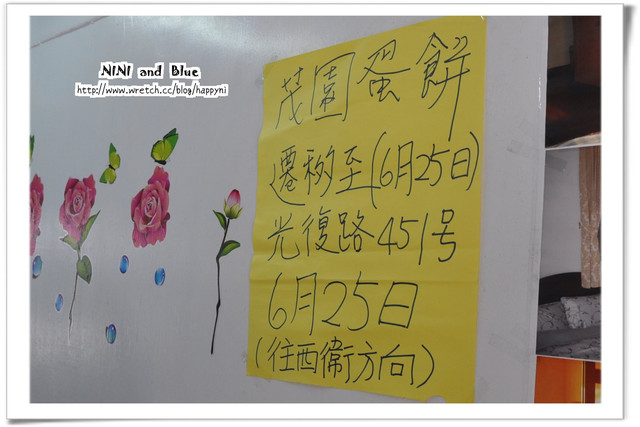 NiNi and Blue
http://www.wretch.cc/blog/happyni
茂園蛋餅
遷移至(6月25日)
光復路451号
6月25日
(往西衛方向)